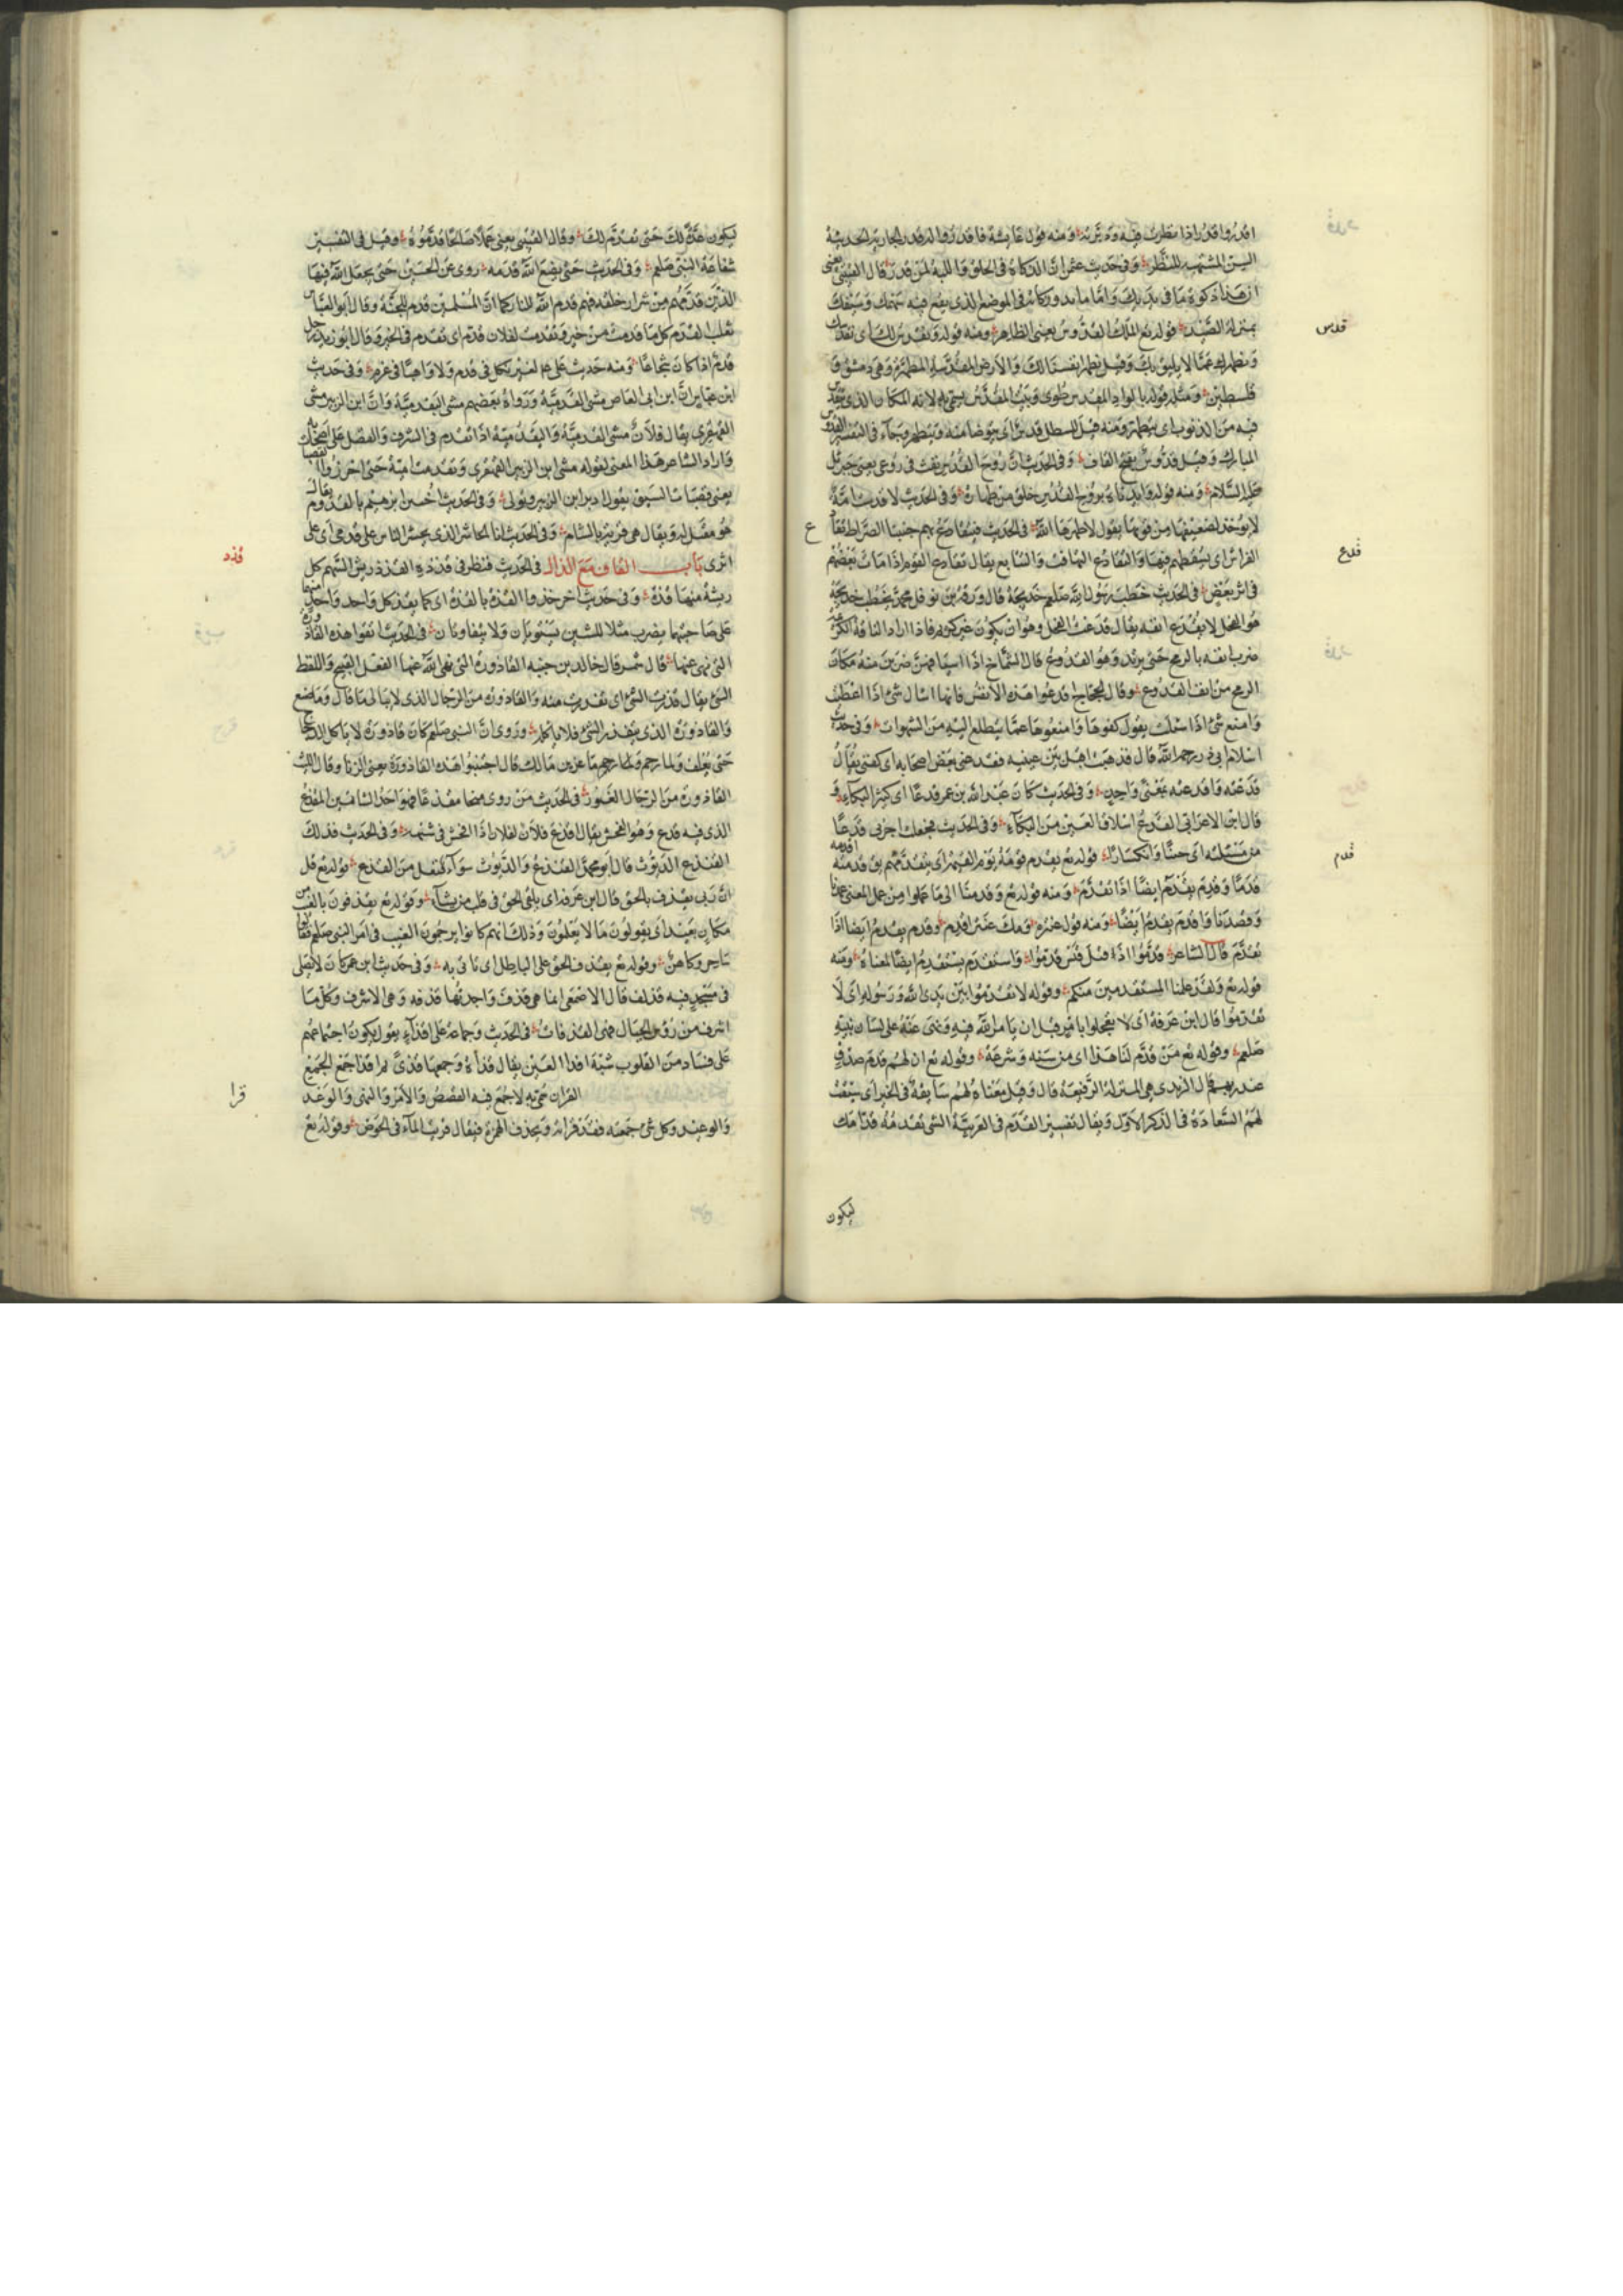 اقدروا قدر اذا نظرت فيه ودبرته ومنه قول عائشة فاقدروا له قدر الجارية الحديثة
السن المشتهية للنظر وفي حديث عثمن ان الذكاة في الحلق واللبة لمن قدر قال القتيبي يعني
ان هذا ذكوة ما في يديك واما ما ند وركائد في الموضع الذي يقع فيه سهمك وسيفك
قدس
بمنزلة الصيد قوله تع الملك القدوس يعني الطاهر ومنه قوله ونقدس لك اي نقدسك
ونطهرك عما لا يليق بك وقيل نطهر انفسنا لك والارض المقدسة المطهرة وهي دمشق و
فلسطين ومثله قوله بالواد المقدس طوى وبيت المقدس سمي به لانه المكان الذي يتقدس
فيه من الذنوب اي يتطهر ومنه قيل للسطل قدس اي يتوضا منه ويتطهر وجاء في التفسير القدوس
المبارك وقيل قدوس بفتح القاف وفي الحديث ان روح القدس نفث في روعي يعني جبرئل
عليه السلام ومنه قوله وايدناه بروح القدس خلق من طهارة وفي الحديث لا قدست امة
لا يؤخذ لضعيفها من قويها يقول لا طهرها الله في الحديث فيتقادع بهم جنبتا الصراط تقا
ع
قدع
الفراش اي يسقطهم فيها والتقادع التهافت والتتابع يقال تقادع القوم اذا مات بعضهم
في اثر بعض في الحديث خطب رسول الله صلعم خديجة قال ورقة بن نوفل محمد يخطب خديجة
هو الفحل لا يقدع انفه يقال قدعت الفحل وهو ان يكون غير كريم فاذا اراد الناقة الكريمة
ضرب انفه بالرمح حتى يرتد وهو القدوع قال الشماخ اذا ما استافهن ضربن منه مكان
الرمح من انف القدوع وقال الحجاج اقدعوا هذه الانفس فانها اسال شئ اذا اعطيت
وامنع شئ اذا سئلت يقول كفوها وامنعوها عما يتطلع اليه من الشهوات وفي حديث
اسلام ابي ذر رحمه الله قال فذهبت اقبل بين عينيه فقدعني بعض اصحابه اي كفني يقال
قدعته واقدعته بمعنى واحد وفي الحديث كان عبد الله بن عمر قدعا اي كثير البكاء و
قال ابن الاعرابي القدع انسلاق العين من البكاء وفي الحديث فجعلت اجد بي قدعا
قدم
من مسئلته اي جبنا وانكسارا قوله تع يقدم قومه يوم القيمة اي يتقدمهم يق قدمته اقدمه
قدما وقدم يقدم ايضا اذا تقدم ومنه قوله تع وقدمنا الى ما عملوا من عمل المعنى عمدنا
وقصدنا واقدم يقدم ايضا ومنه قول عنترة ويك عنتر اقدم وقدم يقدم ايضا اذا
تقدم قال الشاعر قدموا اذ قيل قيس قدموا واستقدم يستقدم ايضا بمعناه ومنه
قوله تع ولقد علمنا المستقدمين منكم وقوله لا تقدموا بين يدي الله ورسوله اي لا
تقدموا قال ابن عرفة اي لا تعجلوا بامر قبل ان يامر الله فيه وينهى عنه على لسان نبيه
صلعم وقوله تع من قدم لنا هذا اي من سنه وشرعه وقوله تع ان لهم قدم صدق
عند ربهم قال الزيدي هي المنزلة الرفيعة قال وقيل معناه لهم سابقة في الخير اي سبقت
لهم السعادة في الذكر الاول ويقال تفسير القدم في العربية الشئ تقدمه قدامك
ليكون
ليكون عدة لك حتى تقدم لك وقال القتيبي يعني عملا صالحا قدموه وقيل في التفسير
شفاعة النبي صلعم وفي الحديث حتى يضع الله قدمه روي عن الحسن حتى يجعل الله فيها
الذين قدمهم من شرار خلقه فهم قدم الله للنار كما ان المسلمين قدم للجنة وقال ابو العباس
ثعلب القدم كل ما قدمت من خير وتقدمت لفلان قدم اي تقدم في الخير وقال ابو زيد رجل
قدم اذا كان شجاعا ومنه حديث علي عم لغير نكل في قدم ولا واهيا في عزم وفي حديث
ابن عباس ان ابن ابي العاص مشى القدمية ورواه بعضهم مشى اليقدمية وان ابن الزبير مشى
القهقري يقال فلان مشى القدمية واليقدمية اذا تقدم في الشرف والفضل على اصحابه
واراد الشاعر هذا المعنى لقوله مشى ابن الزبير القهقري وتقدمت امية حتى احرزوا القصبا
يعني قصبات السبق يقول ادبر ابن الزبير وتولى وفي الحديث اختتن ابرهيم بالقدوم يقال
هو مقيل له ويقال هي قرية بالشام وفي الحديث انا الحاشر الذي يحشر الناس على قدمي اي على
قذذ
اثري باب القاف مع الذال في الحديث فنظر في قذذه القذذ ريش السهم كل
ريشة منها قذة وفي حديث اخر حذو القذة بالقذة اي كما يقدر كل واحد واحد منها
على صاحبها يضرب مثلا للشيئين يستويان ولا يتفاوتان في الحديث اتقوا هذه القاذورة
التي نهى عنها قال شمر قال خالد بن جنبه القاذورة التي نهى الله عنها الفعل القبيح واللفظ
السئ يقال قذرت الشئ اي تقذرت منه والقاذورة من الرجال الذي لا يبالي ما قال وما صنع
والقاذورة الذي يتقذر الشئ فلا ياكله وروي ان النبي صلعم كان قاذورة لا ياكل الدجاج
حتى يعلف ولما رجم ماعز بن مالك قال اجتنبوا هذه القاذورة يعني الزنا وقال الليث
القاذورة من الرجال الغيور في الحديث من روى هجاء مقذعا فهو احد الشاتمين المقذع
الذي فيه قذع وهو الفحش يقال اقذع فلان لفلان اذا افحش في شتمه وفي الحديث فذلك
القنذع الديوث قال ابو محمد القنذع والديوث سواء فنعل من القذع قوله تع قل
ان ربي يقذف بالحق قال ابن عرفة اي يلقي الحق في قلب من يشاء وقوله تع يقذفون بالغيب من
مكان بعيد اي يقولون ما لا يعلمون وذلك انهم كانوا يرجمون الغيب في امر النبي صلعم فقالوا
ساحر وكاهن وقوله تع نقذف بالحق على الباطل اي ناتي به وفي حديث ابن عمر كان لا يصلي
في مسجد فيه قذاف قال الاصمعي انما هي قذف واحدتها قذفة وهي الشرف وكل ما
اشرف من رؤس الجبال فهي القذفات في الحديث وجماعة على اقذاء يقول يكون اجتماعهم
على فساد من القلوب شبه اقذاء العين يقال قذاة وجمعها قذى ثم اقذاء جمع الجمع
قرا
القران سمي به لانه جمع فيه القصص والامر والنهي والوعد
والوعيد وكل شئ جمعته فقد قراته ويحذف الهمزة فيقال قريت الماء في الحوض وقوله تع